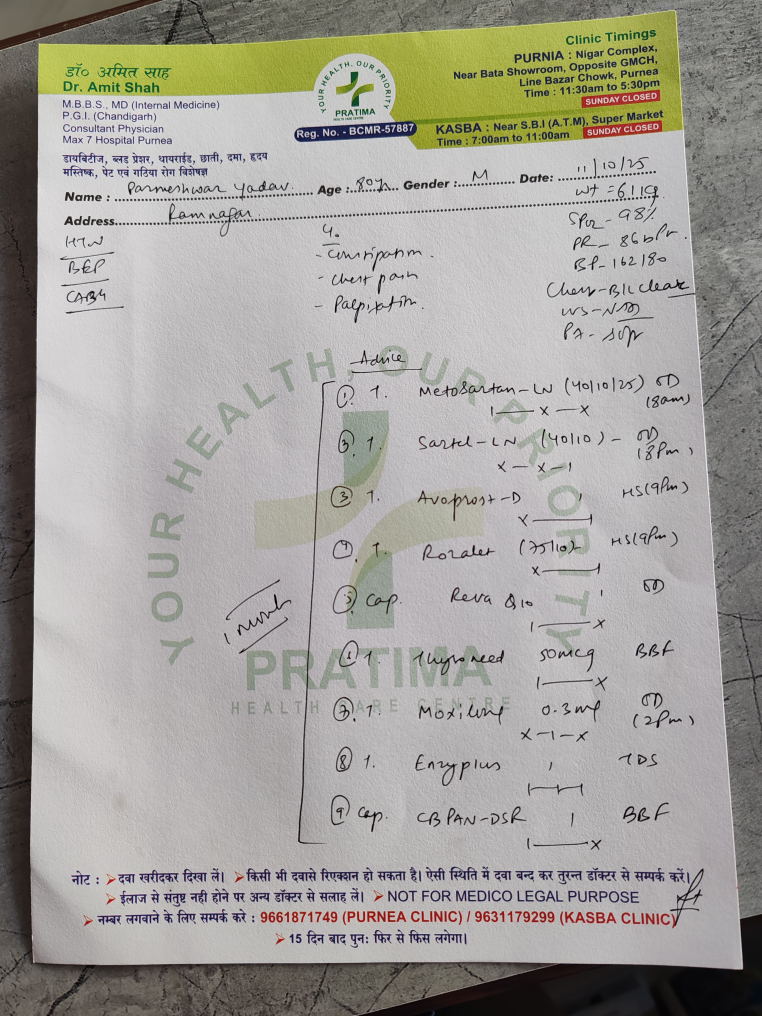 डॉ० अमित साह
Dr. Amit Shah
M.B.B.S., MD (Internal Medicine)
P.G.I. (Chandigarh)
Consultant Physician
Max 7 Hospital Purnea
डायबिटीज, ब्लड प्रेशर, थायराईड, छाती, दमा, हृदय
मस्तिष्क, पेट एवं गठिया रोग विशेषज्ञ
YOUR HEALTH, OUR PRIORITY
PRATIMA
HEALTH CARE CENTRE
Reg. No. - BCMR-57887
Clinic Timings
PURNIA : Nigar Complex,
Near Bata Showroom, Opposite GMCH,
Line Bazar Chowk, Purnea
Time : 11:30am to 5:30pm
SUNDAY CLOSED
KASBA : Near S.B.I (A.T.M), Super Market
Time : 7:00am to 11:00am SUNDAY CLOSED
Name : Parmeshwar Yadav Age : 80y Gender : M Date: 11/10/25
Address Ramnagar
Wt = 61kg
SPO2 - 98%
PR - 86 bpm
BP - 162/80
Chest - B/L clear
PA - soft
HTN
BEP
CABG
- Constipation.
- chest pain
- Palpitation.
Advice
① T. Metosartan-LN (40/10/25) OD (8am)
1 — x — x
T. Sartel-LN (40/10) - OD (8Pm)
x - x - 1
③ T. Avoprost-D HS (9Pm)
x — 1
④ T. Rozalet (75/10) HS (9Pm)
x — 1
⑤ Cap. Reva Q10 1 OD
1 — x
T. Thyroneed 50mcg BBF
1 — x
⑦ T. 0.3mg OD (2Pm)
x - 1 - x
⑧ T. Enzyplus 1 TDS
⑨ Cap. CB PAN-DSR 1 BBF
1 — x
1 month
YOUR HEALTH, OUR PRIORITY
PRATIMA
HEALTH CARE CENTRE
नोट : ➢ दवा खरीदकर दिखा लें। ➢ किसी भी दवासे रिएक्शन हो सकता है। ऐसी स्थिति में दवा बन्द कर तुरन्त डॉक्टर से सम्पर्क करें।
➢ ईलाज से संतुष्ट नही होने पर अन्य डॉक्टर से सलाह लें। ➢ NOT FOR MEDICO LEGAL PURPOSE
➢ नम्बर लगवाने के लिए सम्पर्क करे : 9661871749 (PURNEA CLINIC) / 9631179299 (KASBA CLINIC)
➢ 15 दिन बाद पुनः फिर से फिस लगेगा।